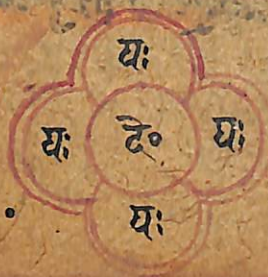 यः
यः दे० यः
यः